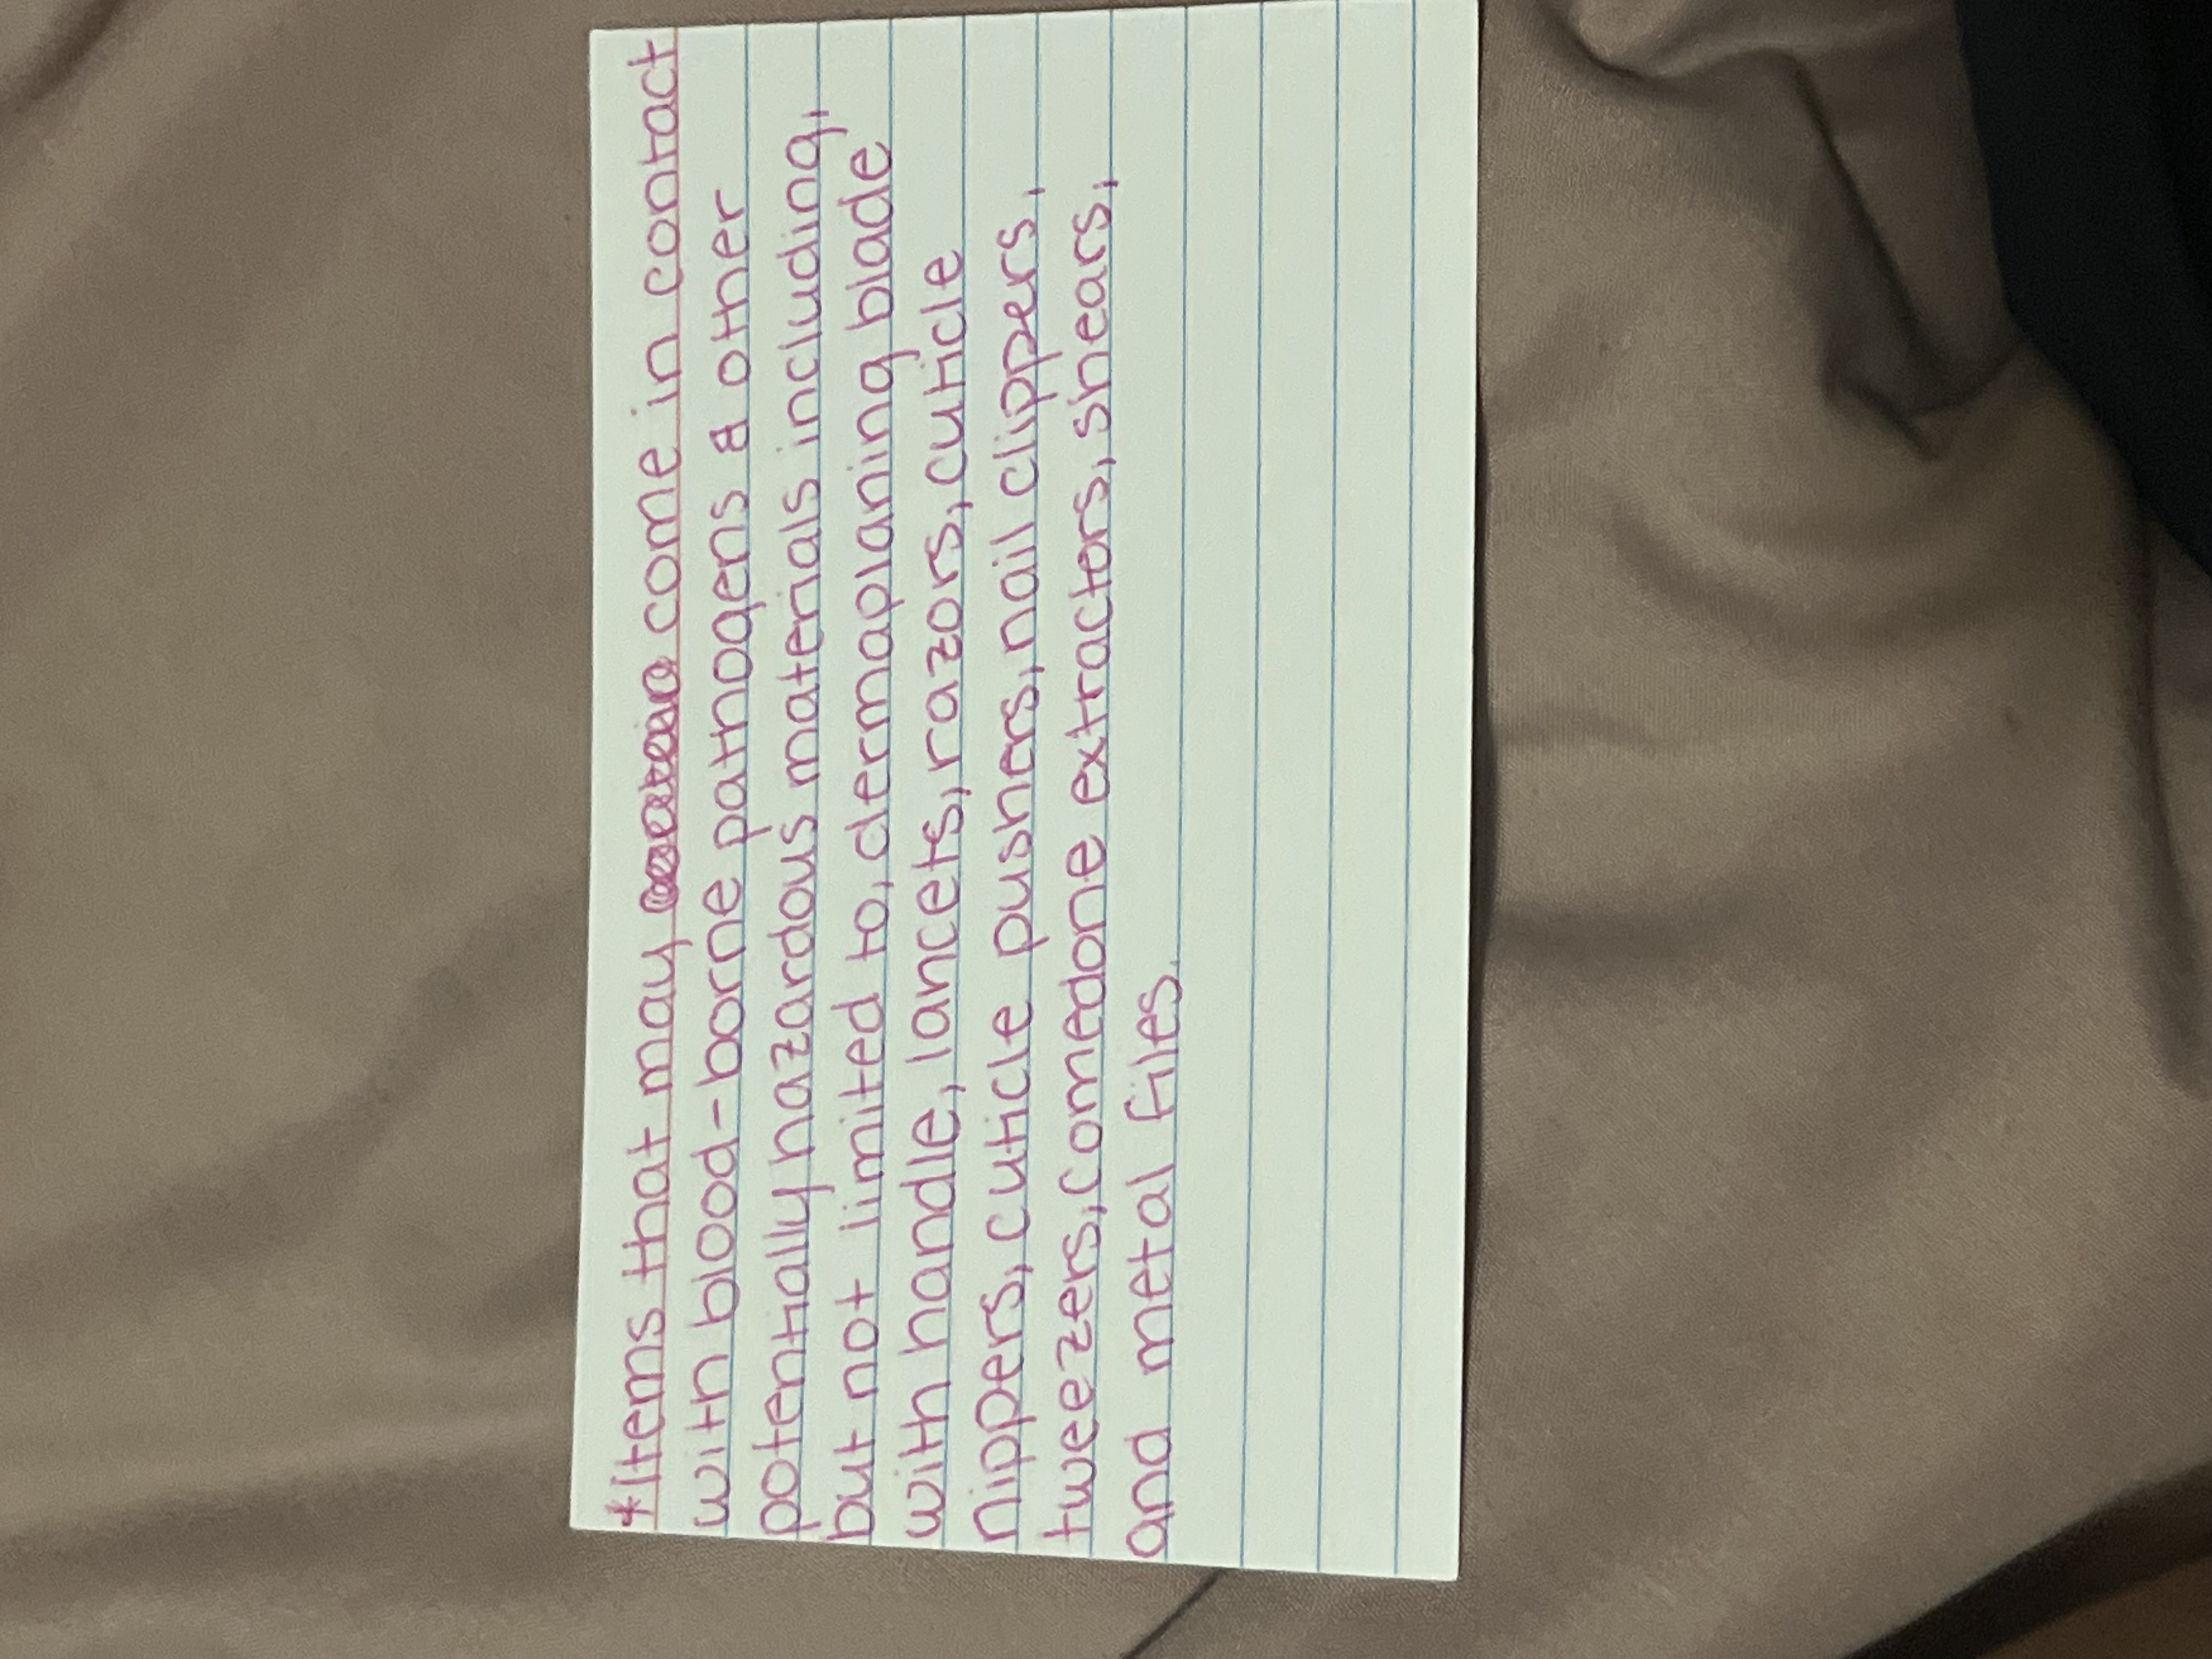 *Items that may come in contact
with blood-borne pathogens & other
potentially hazardous materials including,
but not limited to, dermaplaning blade
with handle, lancets, razors, cuticle
nippers, cuticle pushers, nail clippers,
tweezers, comedone extractors, shears,
and metal files.